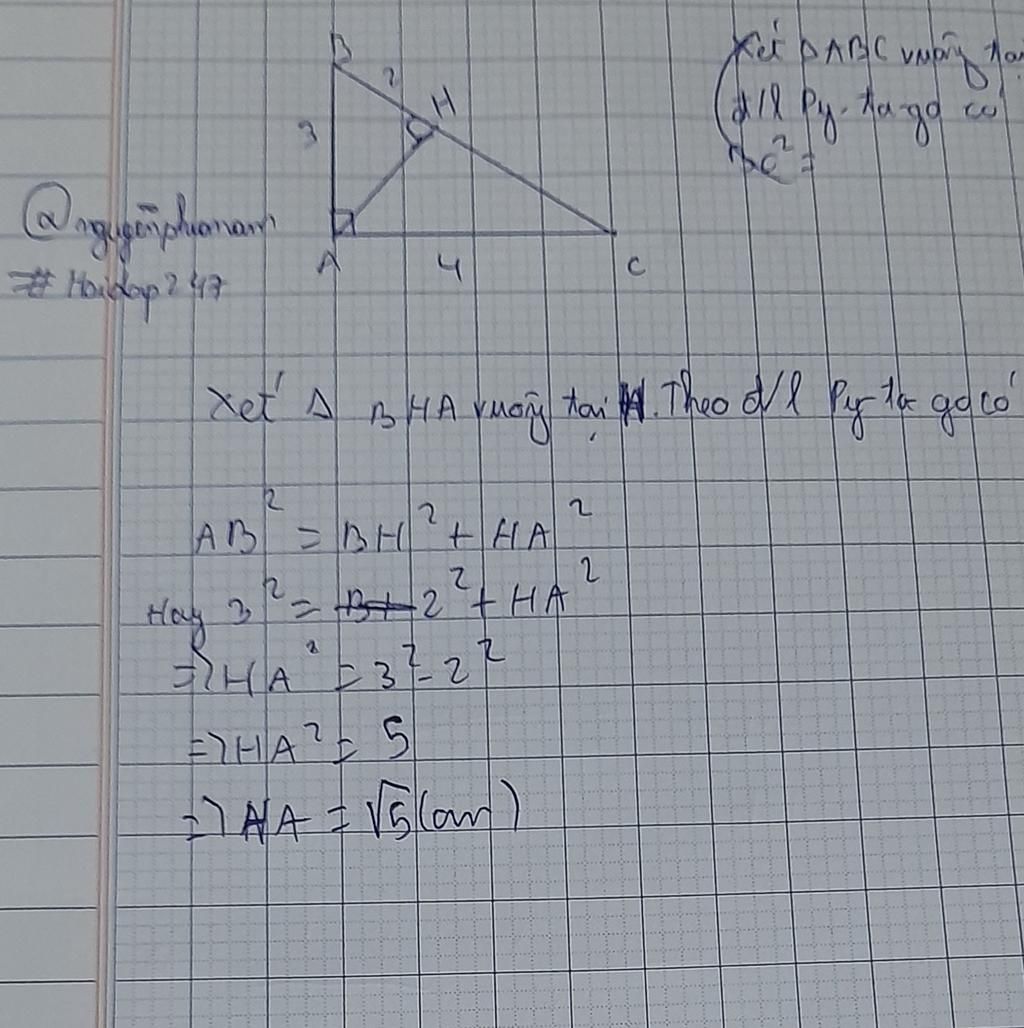 B
2
H
3
A
4
C
Xét Δ ABC vuông tại
đ/l Py-ta-go có
BC² =
@nguyễnphianam
#Hoidap247
Xét Δ BHA vuông tại H. Theo đ/l Py-ta go có
AB² = BH² + HA²
Hay 3² = 2² + HA²
=> HA² = 3² - 2²
=> HA² = 5
=> HA = √5 (cm)